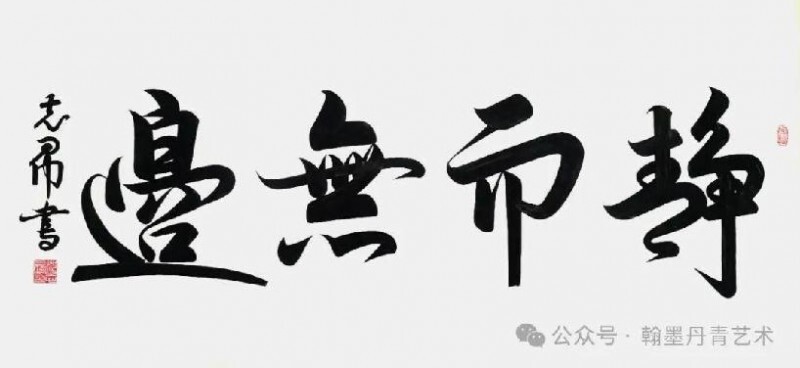 静而無邊
志書
公众号 · 翰墨丹青艺术